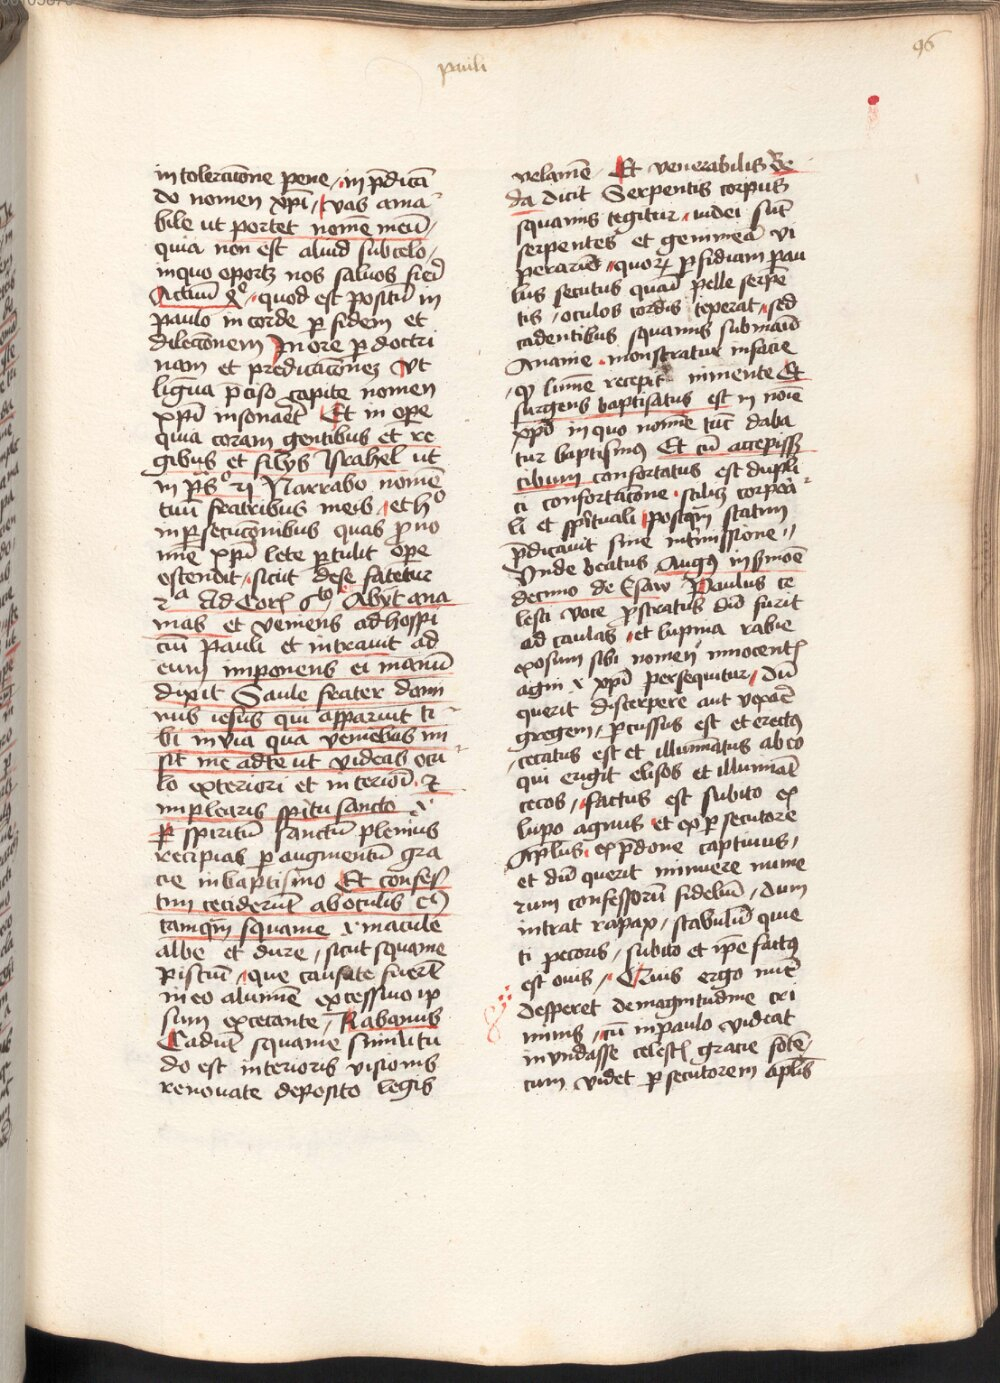 pauli
96
in tolerācōne pene / in p̄dicā
do nomen xp̄i / Vas ama
bile ut portet nomē meū /
quia non est aliud sub celo /
in quo oportꝫ nos saluos fieri
Actuū xͦ / quod est positū in
paulo in corde ꝑ fidem et
dilecc̄onem In ore ꝑ doctri
nam et predicac̄onez Vt
ligua p̄ciso capite nomen
xp̄i insonaēt Et in ope
quia coram gentibus et re
gibus et filijs Israhel ut
in ps̄ͦ 21 Narrabo nomē
tuū fratribus meis / et hͦ
in ꝑsecuc̄onibus quas ꝓ no
mīe xp̄i lete ꝑtulit ope
ostendit / sicut de se fatetur
2ᵃ Ad Corī 6ᵗᵒ Abijt ana
nias et veniens ad hospi
ciū pauli et intrauit ad
eum imponens ei manū
dixit Saule frater domi
nus iesus qui apparuit ti
bi in via qua veniebas mi
sit me ad te ut videas ocu
lo exteriori et interiori et
implearis sp̄itu sancto .i.
ꝑ spiritū sanctū plenius
recipias ꝑ augmentū gra
cie in baptismo Et confes
tim ceciderūt ab oculis eiꝰ
tamqm̄ squame .i. macule
albe et dure / sicut squame
pisciū / que causate fuerūt
in eo a lumīe excessiuo ip
sum excecante / Rabanus
Cadūt squame similitu
do est interioris visionis
renouate deposito legis
velamē Et venerabilis Be
da dicit Serpentis corpus
squamis tegitur / iudei sūt
serpentes et gemmea vi
perarū / quoꝝ ꝑfidiam pau
lus secutus quasi pelle serpē
tis / oculos cordis teperat / sed
cadentibus squamis sub manū
Ananie . monstratur in facie
/ qͥ lumē recepit in mente Et
surgens baptisatus est in noīe
xp̄i in quo nomīe tūc daba
tur baptismus Et cū accepissꝫ
cibum confortatus est dupli
ci confortac̄one . scilicꝫ corpora
li et sp̄rituali postqm̄ statim
p̄dicauit sine intmissione //
Vnde beatus Augꝰ in s̄mone
decimo de Esaw Paulus ce
lesti voce ꝓstratus diu furit
ad caulas / et lupina rabie
exosum sibi nomen innocentis
agni .i. xp̄i persequitur / Dū
querit discerpere aut vexare
gregem / ꝑcussus est et erectus
/ cecatus est et illuminatus ab eo
qui erigit elisos et illuminat
cecos / factus est subito ex
lupo agnus et ex ꝑsecutore
Apl̄us . ex p̄done captiuus /
et dū querit minuere nume
rum confessorū fideliū / dum
intrat rapax / stabulū quie
ti pecoris / subito et ip̄e factus
est ouis / Quis ergo nūc
desperet de magnitudine cri
minis / cū in paulo videat
inundasse celestis gracie fōtē /
cum videt ꝑsecutorem apl̄is